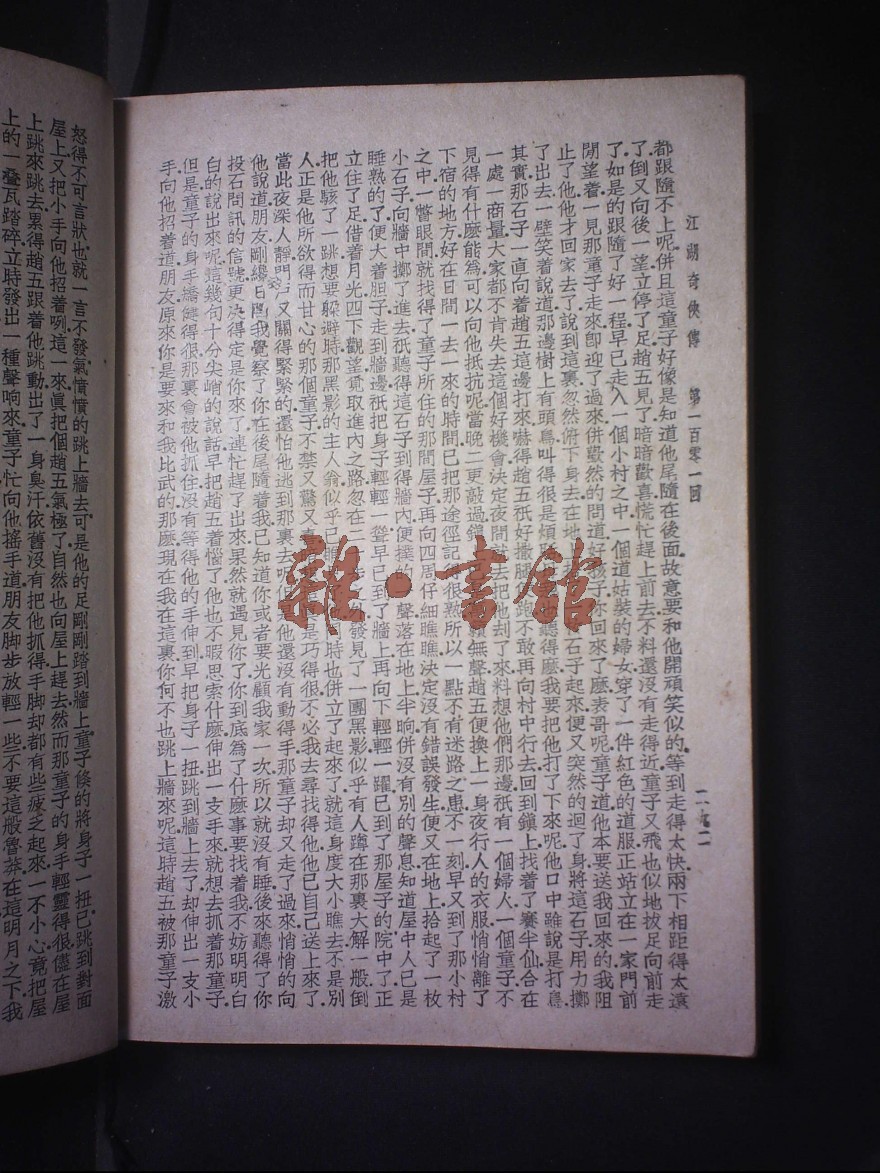 江湖奇俠傳　第一百零一回　二九二
都跟隨不上呢併且這童子好像是知道他尾隨在後面故意要和他開頑笑似的等到走得太快兩下相距得太遠
了倒又向後一望立停了足趙五見了暗暗歡喜慌忙趕上前去不料還沒有走得近童子又飛也似地拔足向前走
了如是的跟隨了好一程早已走入一個小村之中一個道姑裝的婦女穿了一件紅色的道服正站立在一家門前
閒望着一見那童子走來卽迎了過來併歡然的問道好孩子你回來了麼表哥呢童子道他本要送我回來的我阻
止了他他才回家去了說到這裏忽然俯下身去在地
石子起來便又突然的迴了身將這石子用力擲
了出去一壁笑着說道那邊樹上有頭鳥叫得很是煩
聽得麼我要把他打了下來呢他口中雖說是打鳥
其實那石子一直向着趙五這邊打來嚇得趙五祇好撒腿
跑不敢再向村中行去回到鎭上找着了賽半仙合在
一處一商量大家都不肯失去這個好機會決定夜開
去把他刦了來料想他們那邊祇有一個婦人一個童子不
見得有什麼能爲可以向他抵抗呢當晚二更敲過鎭
籟無聲趙五便換上一身夜行人的衣服悄悄離了
下宿的地方好在日間一去一來的時間已把那途徑記得很熟所以一點不有迷路之患不一刻早又到了那小村
之中一瞥眼間就找得了童子所住的那間屋子再向四周仔細瞧瞧決定沒有錯誤發生便又在地上拾起了一枚
小石子向牆中擲了進去祇聽得這石子到得牆內便撲
聲落在地上半晌併沒有別的聲息知道屋中人已是
睡熟的了便大着胆子走到牆邊祇把身子輕輕一聳早已到了牆上再向下輕輕一躍已到了那屋子的院中了正
立住了足借着月光四下觀望覓取進內之路忽在二
發見了一團黑影似乎有人蹲在那裏大解一般倒
把他駭了一跳想要躱避時那黑影的主人翁似乎已瞧
時也併立了起來了就這身度大小瞧去不是別
人正是他所欲得而甘心的那個童子不禁又驚又
是巧得很不必我去尋找得他他已自己送上來了
當此夜深人靜門戶又關得緊緊的還怕他逃到那裏去呢但是他還沒有動得手那童子却又走了過來悄悄的向
他說道朋友剛纔日間我覺察了你在後尾隨着我已知道你或者要光顧我家一次所以就沒有睡後來聽得了你
投石問訊的信號更決得定是你來了連忙趕了出來果然就遇見你了你到底爲了什麼事要找着我不妨明明白
白的說出來呢這幾句十分尖峭的說話早把趙五着惱了他也不暇思索什麼伸出一支手來就想去抓着那童子
但是童子的身手矯健得很那裏會被他抓住沒有等得他的手伸到早把身子一扭跳到牆上去了却伸出一支小
手向他招着道朋友原來你是要來和我比武的那麼現在我在這裏你何不也跳上牆來呢這時趙五被那童子激
怒得不可言狀也就一言不發氣憤憤的跳上牆去可是他的足剛剛踏到牆上童子倏的將身子一扭已跳到對面
屋上又把小手向他招着咧這一來眞把個趙五氣極了自然也向屋上趕去然而那童子的身手輕靈得很儘在屋
上跳來跳去累得趙五跟着他跳動出了一身臭汗依舊沒有把他抓得手脚却都有些疲乏起來一不小心竟把屋
上的一疊瓦踏碎立時發出一種聲响來童子忙向他搖手道朋友脚步放輕一些不要這般魯莽在這明月之下我
雜·書館